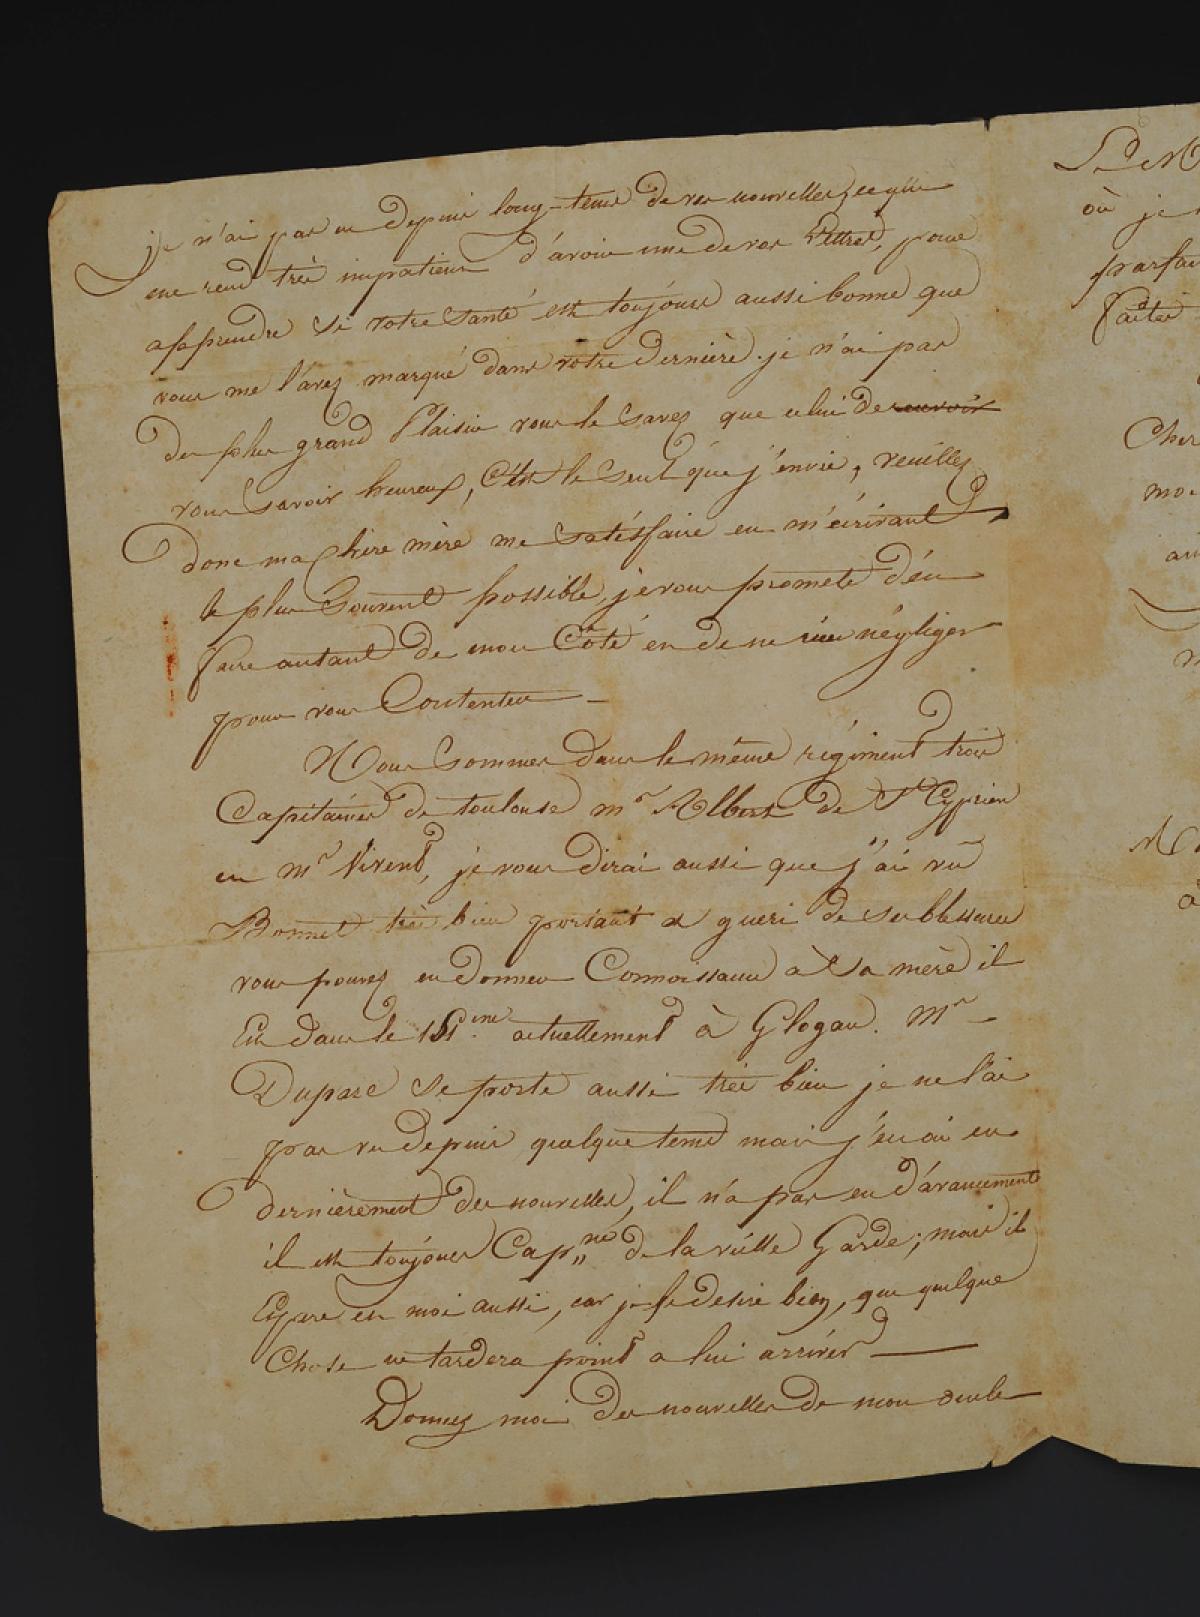 je n'ai pas eu depuis long-tems de vos nouvelles, ce qui
me rend très impatient d'avoir une de vos Lettres, pour
apprendre si votre santé est toujours aussi bonne que
vous me l'avez marqué dans votre dernière. je n'ai pas
de plus grand Plaisir vous le savez que celui de recevoir
vous savoir heureux, C'est le seul que j'envie, veuillez
donc ma chère mère me satisfaire en m'écrivant
le plus souvent possible, je vous promets d'en
faire autant de mon Côté en de ne rien négliger
pour vous Contenter
Nous Sommes dans le même régiment trois
Capitaines de toulouse mr Albert de St Cyprien
en mr Vivent, je vous dirai aussi que j'ai vu
Bonnet très bien portant et gueri de ses blessures
vous pouvez en donner Connoissance à sa mère il
Est dans le 151.me actuellement à Glogau. Mr
Duparc se porte aussi très bien je ne l'ai
pas vu depuis quelque tems mais j'en ai eu
dernièrement des nouvelles, il n'a pas eu d'avancement
il est toujours Cap,,ne de la vieille Garde; mais il
Espere en moi aussi, car je le desire bien, que quelque
Chose ne tardera point a lui arriver
Donnez moi des nouvelles de mon oncle
où je
parfai
faites
Cher
moi
M
à